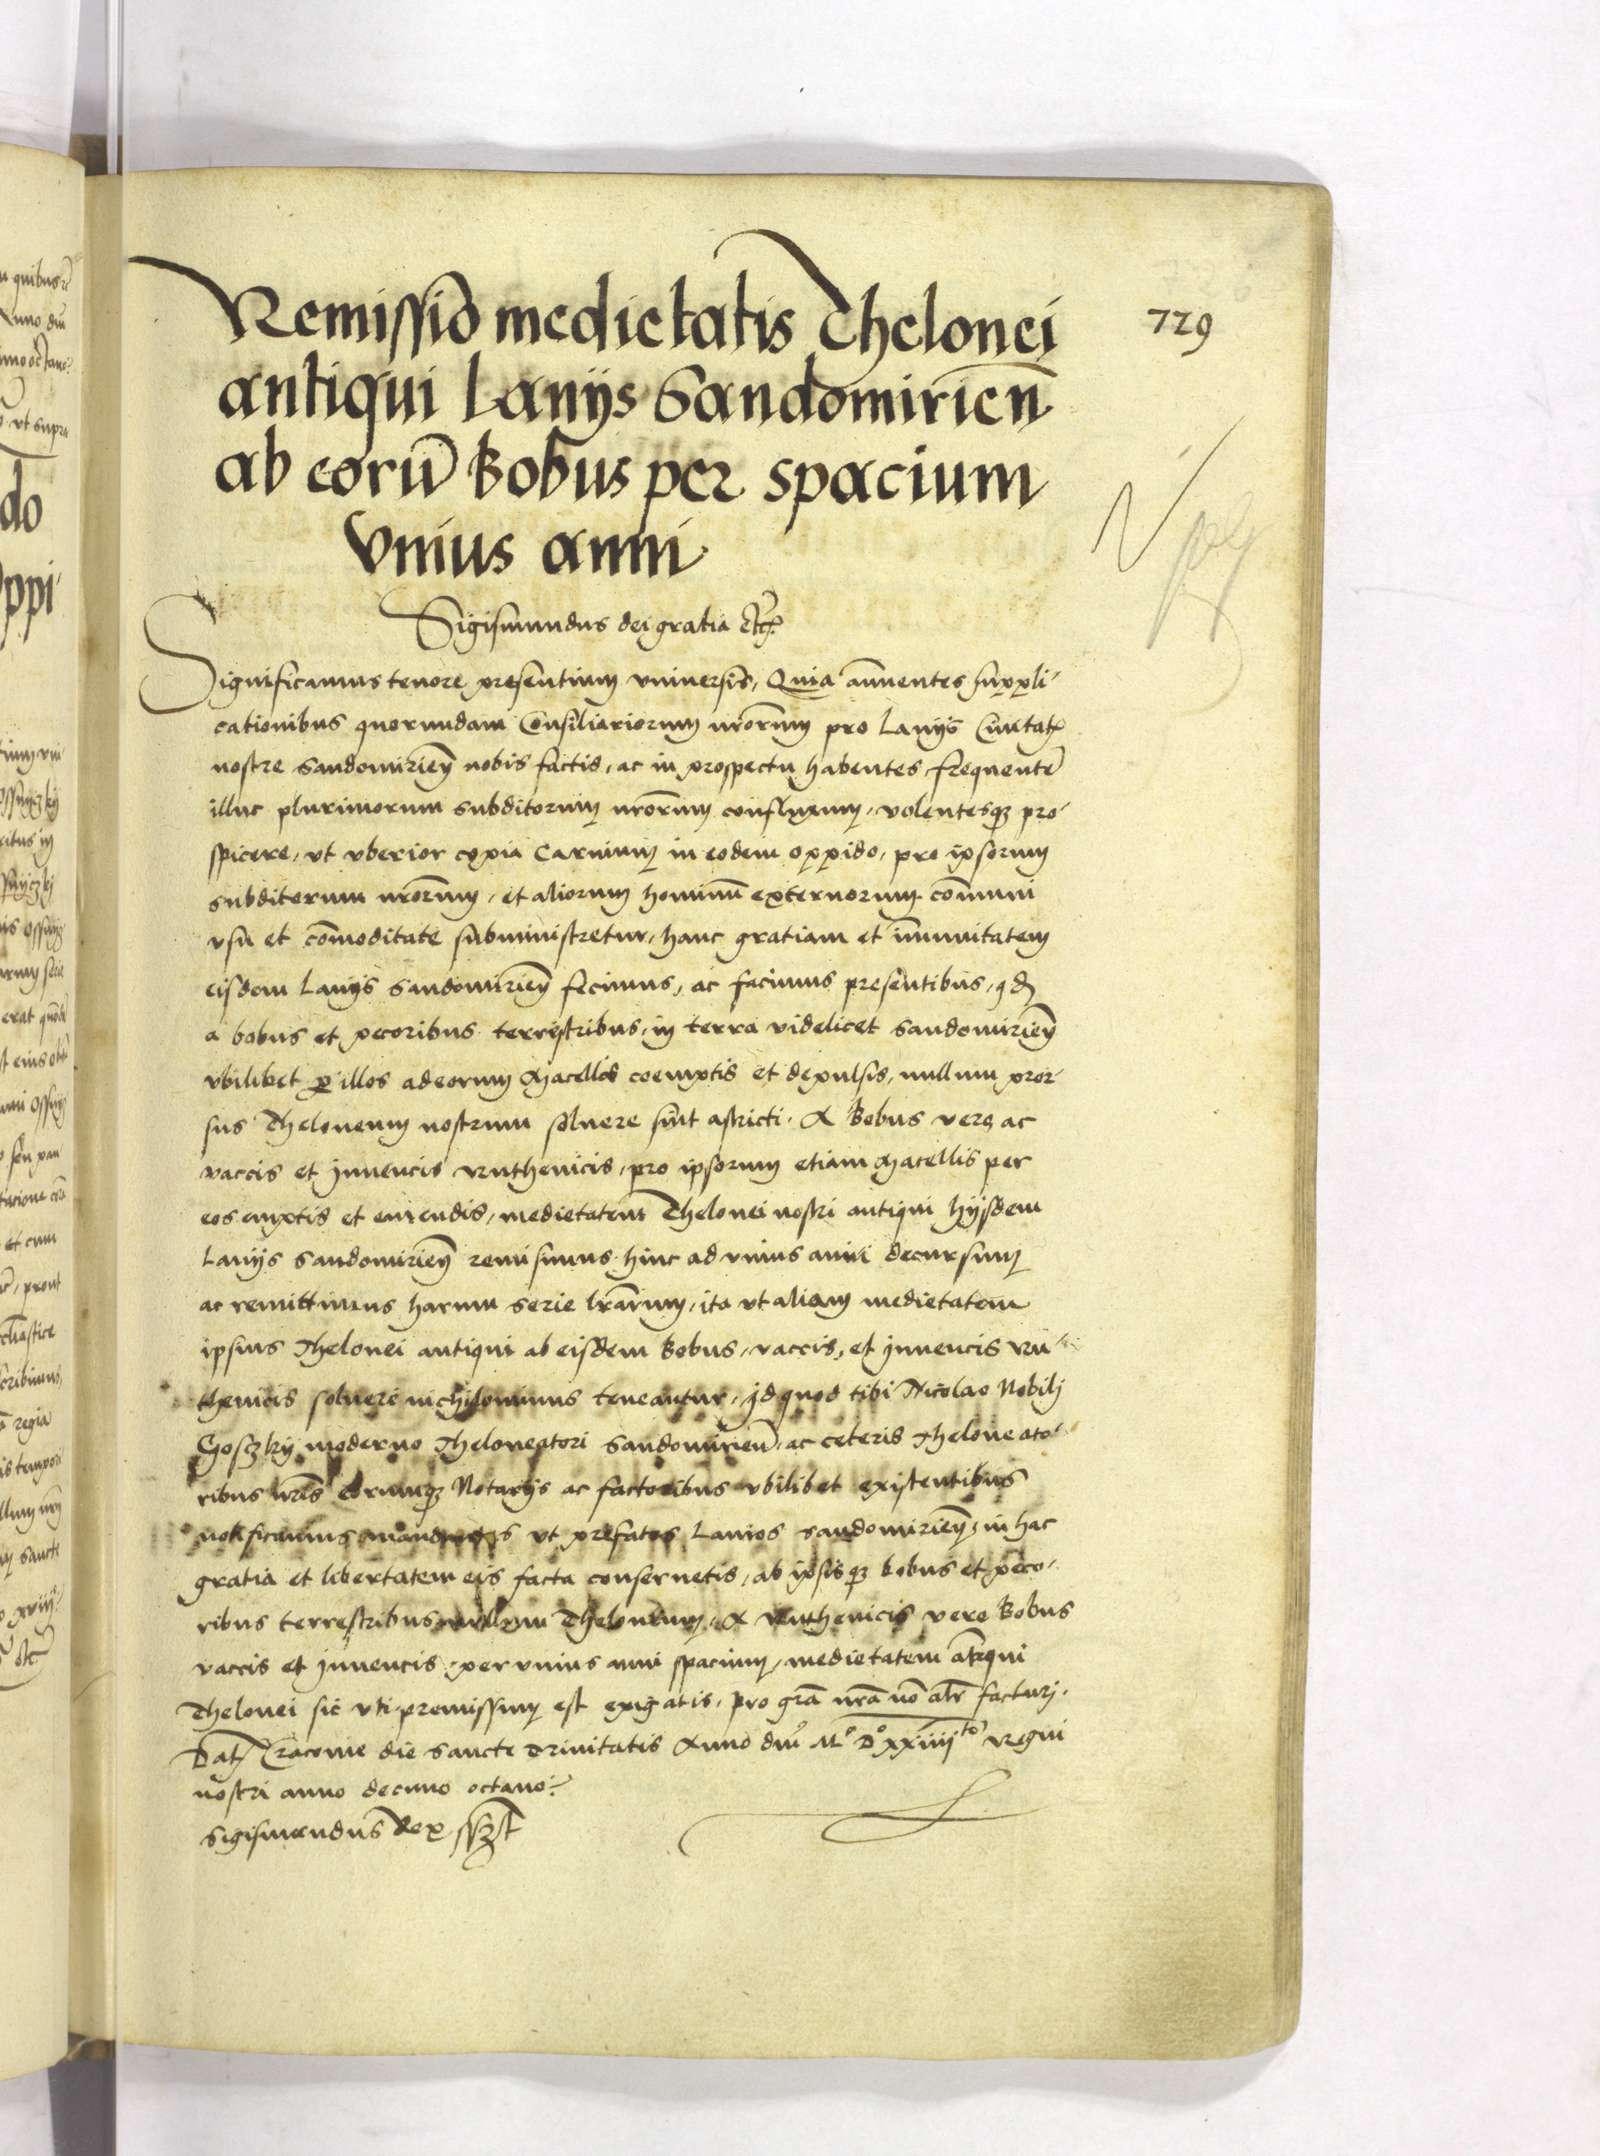 729
Remissio medietatis Thelonei
antiqui Lanijs Sandomirien̄
ab eorū Bobus per spacium
vnius anni
Sigismundus dei gratia etc̄
Significamus tenore presentium vniuersis, Quia annuentes suppli-
cationibus quorundam Consiliariorum nrōrum pro Lanijs Ciuitat̄
nostre Sandomirien̄ nobis factis, ac in prospectu habentes, frequentē
illuc plurimorum subditorum nrōrum confluxum, volentesq3 pro-
spicere, vt vberior copia Carnium in eodem oppido, pro ipsorum
subditorum nrōrum, et aliorum hominū externorum com̄uni
vsu et com̄oditate subministretur, hanc gratiam et im̄unitatem
eisdem Lanijs Sandomirien̄ fecimus, ac facimus presentibus, qd̄
a bobus et pecoribus terrestribus, in terra videlicet Sandomirien̄
vbilibet p̄ illos ad eorum Macellos coemptis et depulsis, nullum pror-
sus Theloneum nostrum soluere sint astricti. A Bobus vero ac
vaccis et Juuencis Ruthenicis, pro ipsorum etiam Macellis per
eos emptis et emendis, medietatem Thelonei nostri antiqui hijsdem
Lanijs Sandomirien̄ remisimus hinc ad vnius anni decursum
ac remittimus harum serie lrārum, ita vt aliam medietatem
ipsius Thelonei antiqui ab eisdem Bobus, vaccis, et Juuencis Ru-
thenicis soluere nichilominus teneantur, Jd quod tibi Nicolao Nobilj
Goszky moderno Theloneatori Sandomirien̄, ac ceteris Theloneato-
ribus nrīs eorumq3 Notarijs ac factoribus vbilibet existentibus
notificamus mandantes vt prefatos Lanios Sandomirien̄, in hac
gratia et libertatem eis facta conseruetis, ab ipsisq3 bobus et peco-
ribus terrestribus nullum Theloneum, A Ruthenicis vero Bobus
vaccis et Juuencis per vnius anni spacium, medietatem antiqui
Thelonei sic vti premissum est exigatis, pro grā nrā nō alr̄ facturj.
Dat̄ Cracouie die Sancte Trinitatis Anno dnī Mo Do xxiiiito Regni
nostri anno decimo octauo
Sigismundus Rex sszt